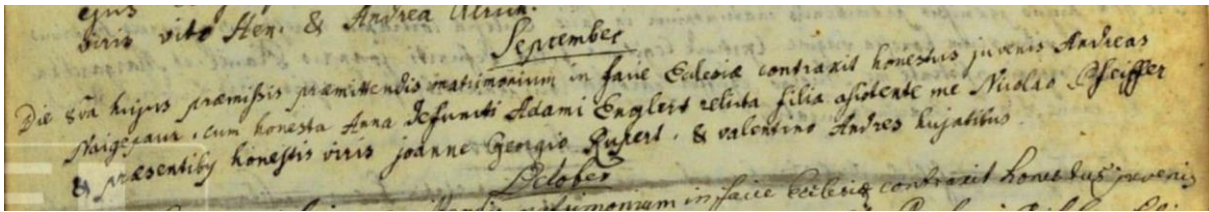 ejus
viris Vito Hen. & Andrea Ulrich.
September
Die 8va hujus præmissis præmittendis matrimonium in facie Ecclesiæ contraxit honestus juvenis Andreas
cum honesta Anna defuncti Adami Englert relicta filia assistente me Nicolao Pfeiffer
& præsentibus honestis viris joanne Georgio Rupert. & valentino Andres hujatibus.
October
matrimonium in facie Ecclesiæ contraxit honestus juvenis